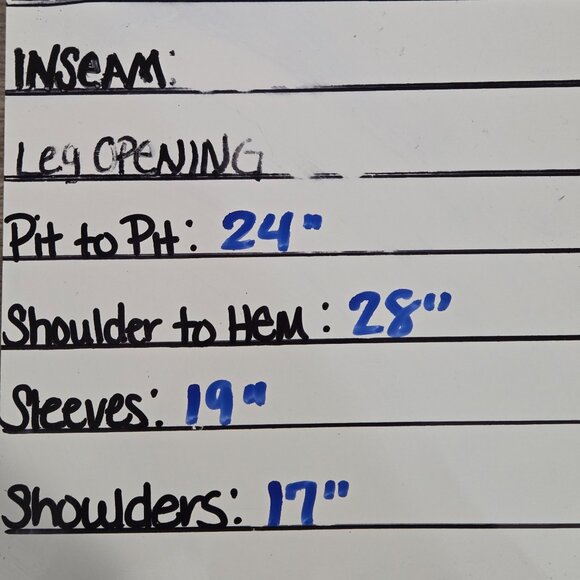 INSEAM:
Leg OPENING
Pit to Pit: 24"
Shoulder to HeM: 28"
Sleeves: 19"
Shoulders: 17"